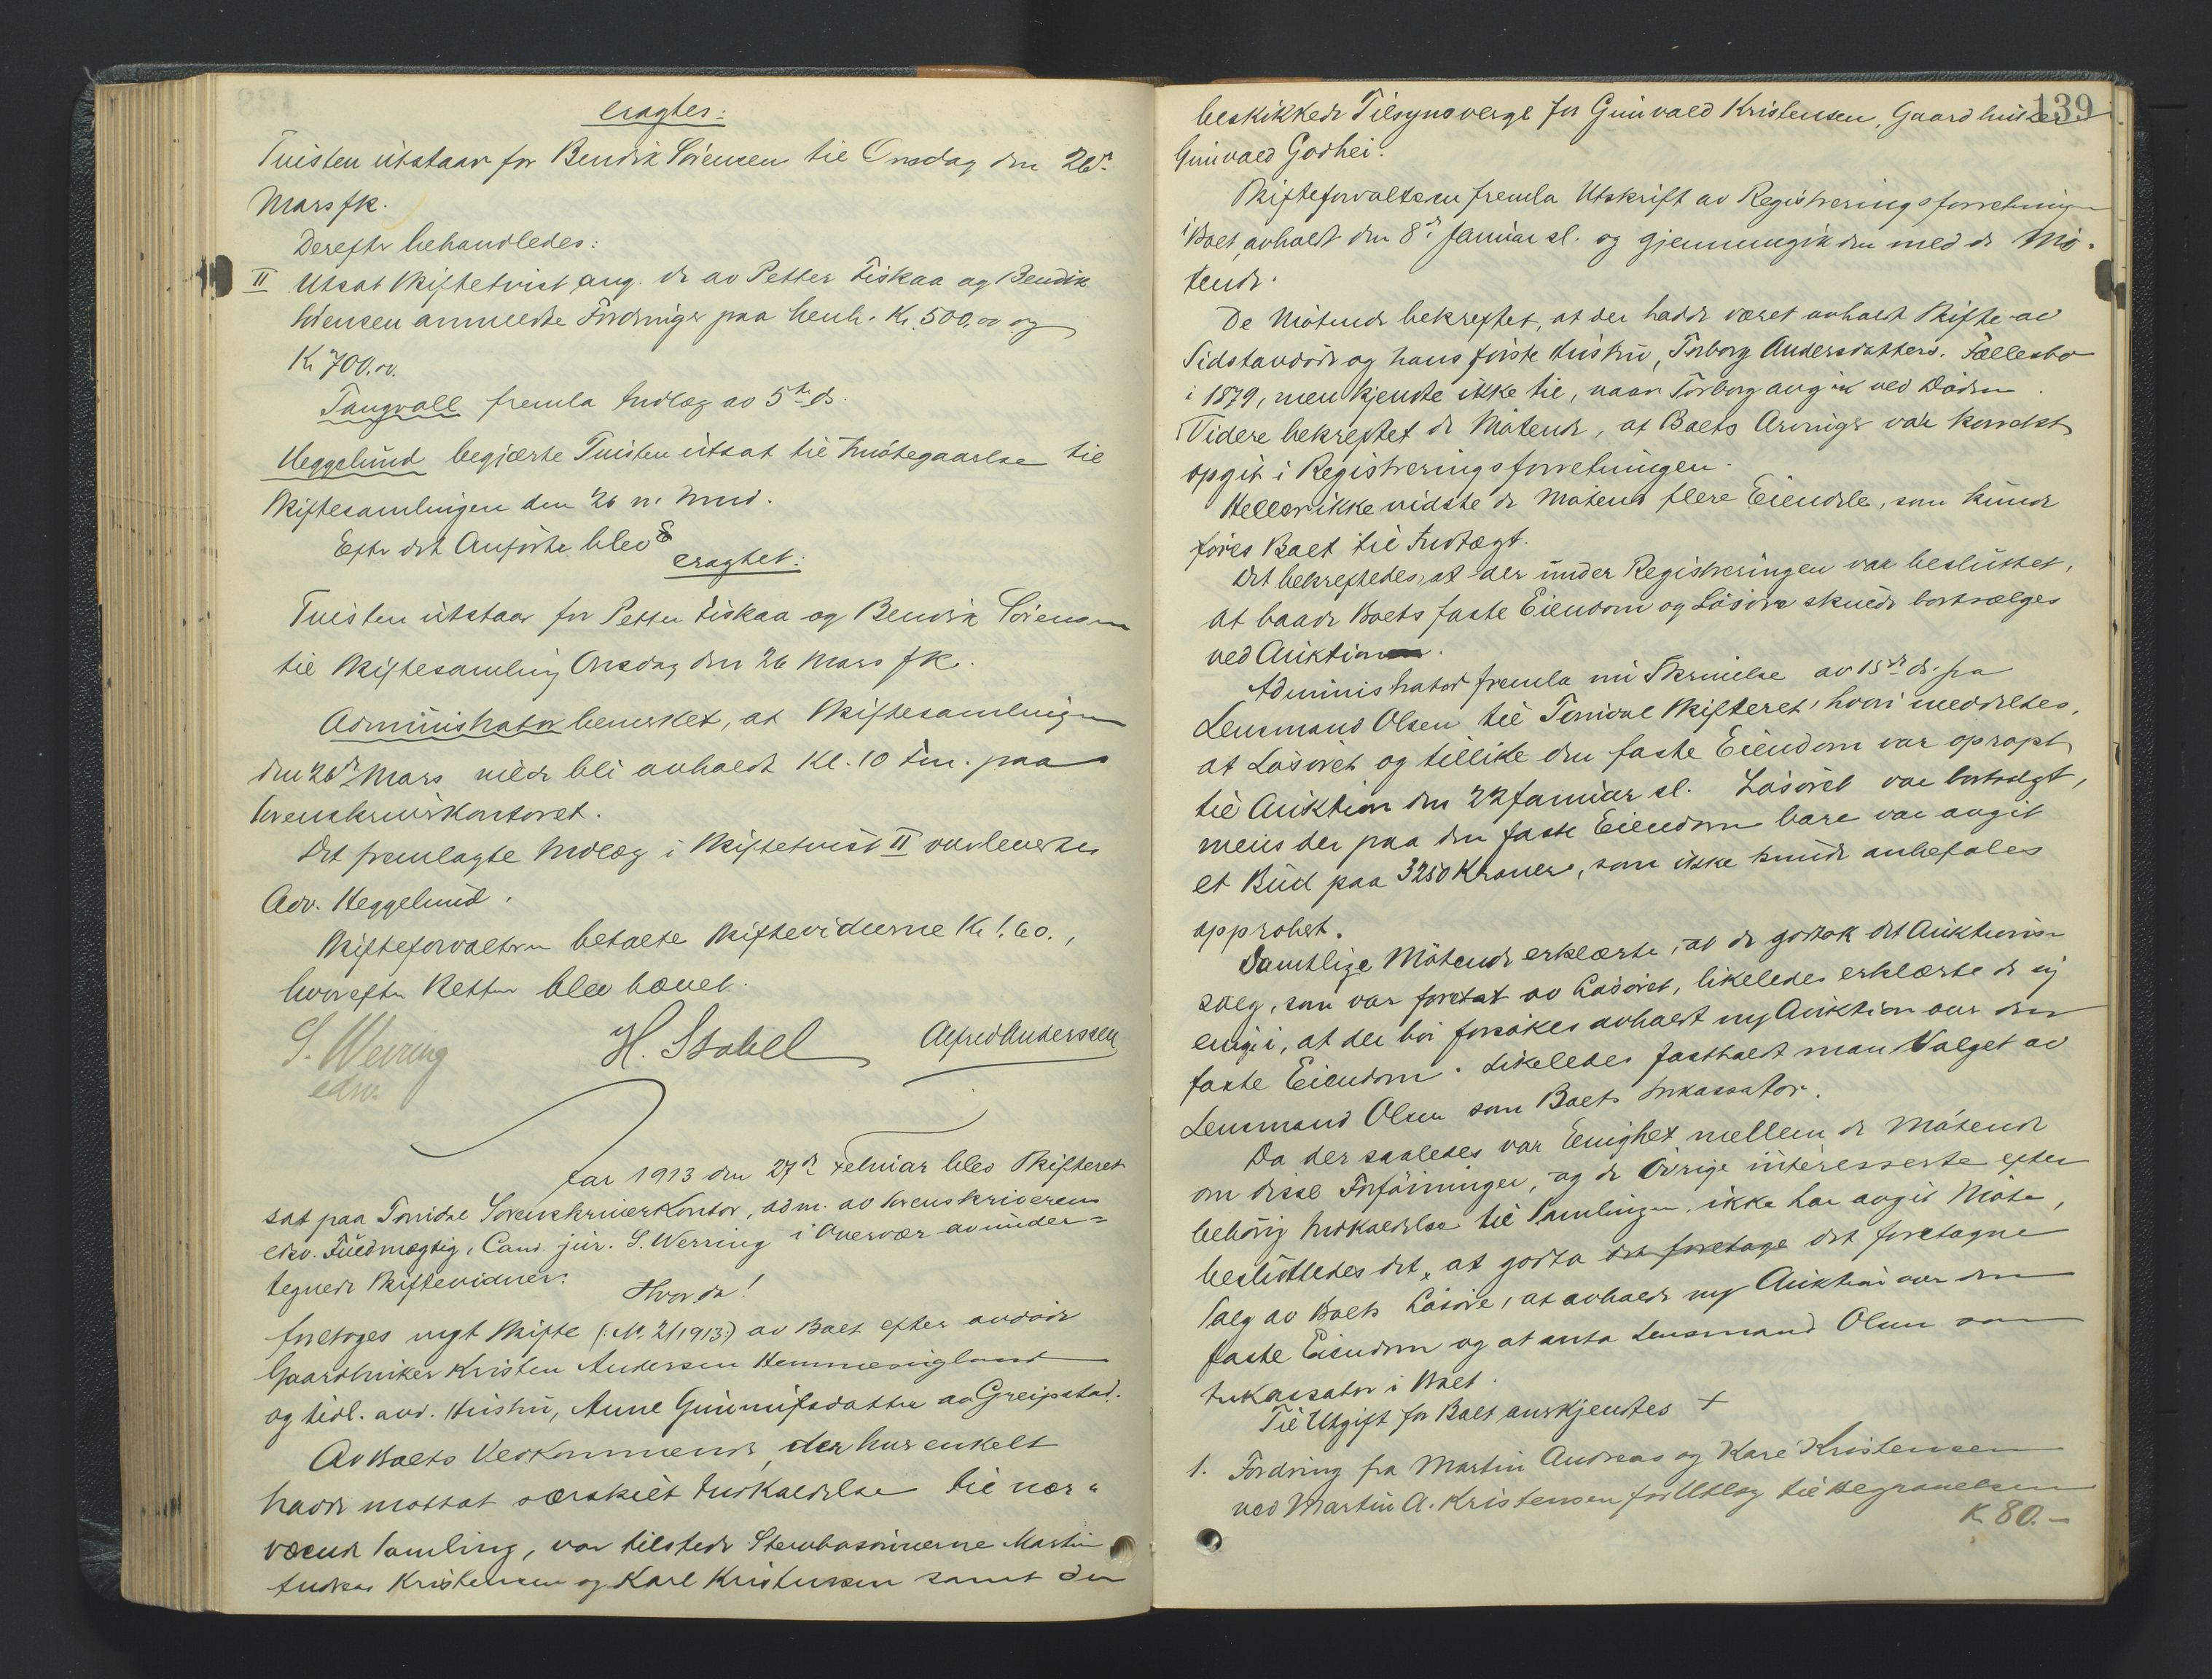 eragtes:
Tvisten utstaar for Bendik Sørensen til Onsdag den 26de
Mars fk.
Derefter behandledes:
II Utsat Skiftetvist ang. de av Petter Fiskaa og Bendik
Sørensen anmeldte Fordringer paa henh. Kr. 500.00 og
Kr 700.00.
Tangvall fremla Indlæg av 5te ds.
Heggelund begjærte Tvisten utsat til Imøtegaaelse til
Skiftesamlingen den 26 n. Mnd.
Efter det Anførte blev
eragtet:
Tvisten utstaar for Petter Fiskaa og Bendik Sørensen
til Skiftesamling Onsdag den 26 Mars fk.
Administrator bemerket, at Skiftesamlingen
den 26de Mars vilde bli avholdt Kl. 10 Fm. paa
Sorenskriverkontoret.
Det fremlagte Indlæg i Skiftetvist II overlevertes
Adv. Heggelund.
Skifteforvalteren betalte Skiftevidnerne Kr 1.60.,
hvorefter Retten blev hævet.
S. Werring H. Stabel Alfred Anderssen
edsv.
Aar 1913 den 27de Februar blev Skifteret
sat paa Torridal Sorenskriverkontor, adm. av Sorenskriverens
edsv. Fuldmægtig, Cand. jur. S. Werring i Overvær av under=
tegnede Skiftevidner:
Hvorda!
foretoges nyt Skifte (: No. 2/1913:) av Boet efter avdøde
Gaardbruker Kristen Andersen Hemmesigland
og tidl. avd. Hustru, Anne Gunnufsdatter av Greipstad.
Av Boets Vedkommende, der hver enkelt
havde mottat særskilt Indkaldelse til nær=
værende Samling, var tilstede Stervbosønnerne Martin
Andreas Kristensen og Karl Kristensen samt den
139
beskikkede Tilsynsverge for Gunvald Kristensen, Gaardbruker
Gunvald Godhei.
Skifteforvalteren fremla Utskrift av Registreringsforretningen
i Boet, avholdt den 8de Januar sl. og gjennemgik den med de Mø=
tende.
De Møtende bekreftet, at der hadde været avholdt Skifte av
Sidstavdøde og hans første Hustru, Torborg Andersdatters Fællesbo
i 1879, men kjendte ikke til, naar Torborg avgik ved Døden.
Videre bekreftet de Møtende, at Boets Arvinger var korrekt
opgit i Registreringsforretningen.
Heller ikke vidste de Møtende flere Eiendele, som kunde
føres Boet til Indtægt.
Det bekreftedes, at der under Registreringen var besluttet,
at baade Boets faste Eiendom og Løsøre skulde bortsælges
ved Auktion.
Administrator fremla nu Skrivelse av 15de ds. fra
Lensmand Olsen til Torridal Skifteret, hvori meddeltes,
at Løsøret og tillike den faste Eiendom var opropt
til Auktion den 22 Januar sl. Løsøret var bortsolgt,
mens der paa den faste Eiendom bare var avgit
et Bud paa 3250 Kroner, som ikke kunde anbefales
approbert.
Samtlige Møtende erklærte, at de godtok det Auktions=
salg, som var foretat av Løsøret, likeledes erklærte de sig
enig i, at der bør forsøkes avholdt ny Auktion over den
faste Eiendom. Likeledes fastholdt man Valget av
Lensmand Olsen som Boets Inkassator.
Da der saaledes var Enighet mellem de Møtende
om disse Forføininger, og de øvrige interesserte efter
behørig Indkaldelse til Samlingen ikke har avgit Møte,
besluttedes det, at godta det foretage det foretagne
Salg av Boets Løsøre, at avholde ny Auktion over den
faste Eiendom og at anta Lensmand Olsen som
Inkassator i Boet.
Til Utgift for Boet anerkjendtes +
1. Fordring fra Martin Andreas og Karl Kristensen
ved Martin A. Kristensen for Utlæg til Begravelsen
Kr. 80.-